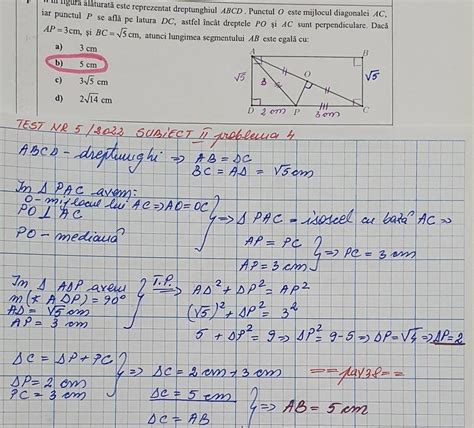 în figura alăturată este reprezentat dreptunghiul ABCD. Punctul O este mijlocul diagonalei AC,
iar punctul P se află pe latura DC, astfel încât dreptele PO și AC sunt perpendiculare. Dacă
AP = 3cm, și BC = √5cm, atunci lungimea segmentului AB este egală cu:
a) 3 cm
b) 5 cm
c) 3√5 cm
d) 2√14 cm
A B
√5 3 O √5
D 2 cm P 3 cm C
TEST NR 5/2022 SUBIECT II problema 4
ABCD - dreptunghi => AB = DC
BC = AD = √5 cm
În Δ PAC avem:
O - mijlocul lui AC => AO = OC
PO ⊥ AC
PO - mediană
=> Δ PAC = isoscel cu baza AC =>
AP = PC
AP = 3 cm
=> PC = 3 cm
În Δ ADP avem
m(∢ ADP) = 90°
AD = √5 cm
AP = 3 cm
T.P. => AD² + DP² = AP²
(√5)² + DP² = 3²
5 + DP² = 9 => DP² = 9-5 => DP = √4 => DP = 2
DC = DP + PC
DP = 2 cm
PC = 3 cm
=> DC = 2 cm + 3 cm
DC = 5 cm
DC = AB
=> AB = 5 cm